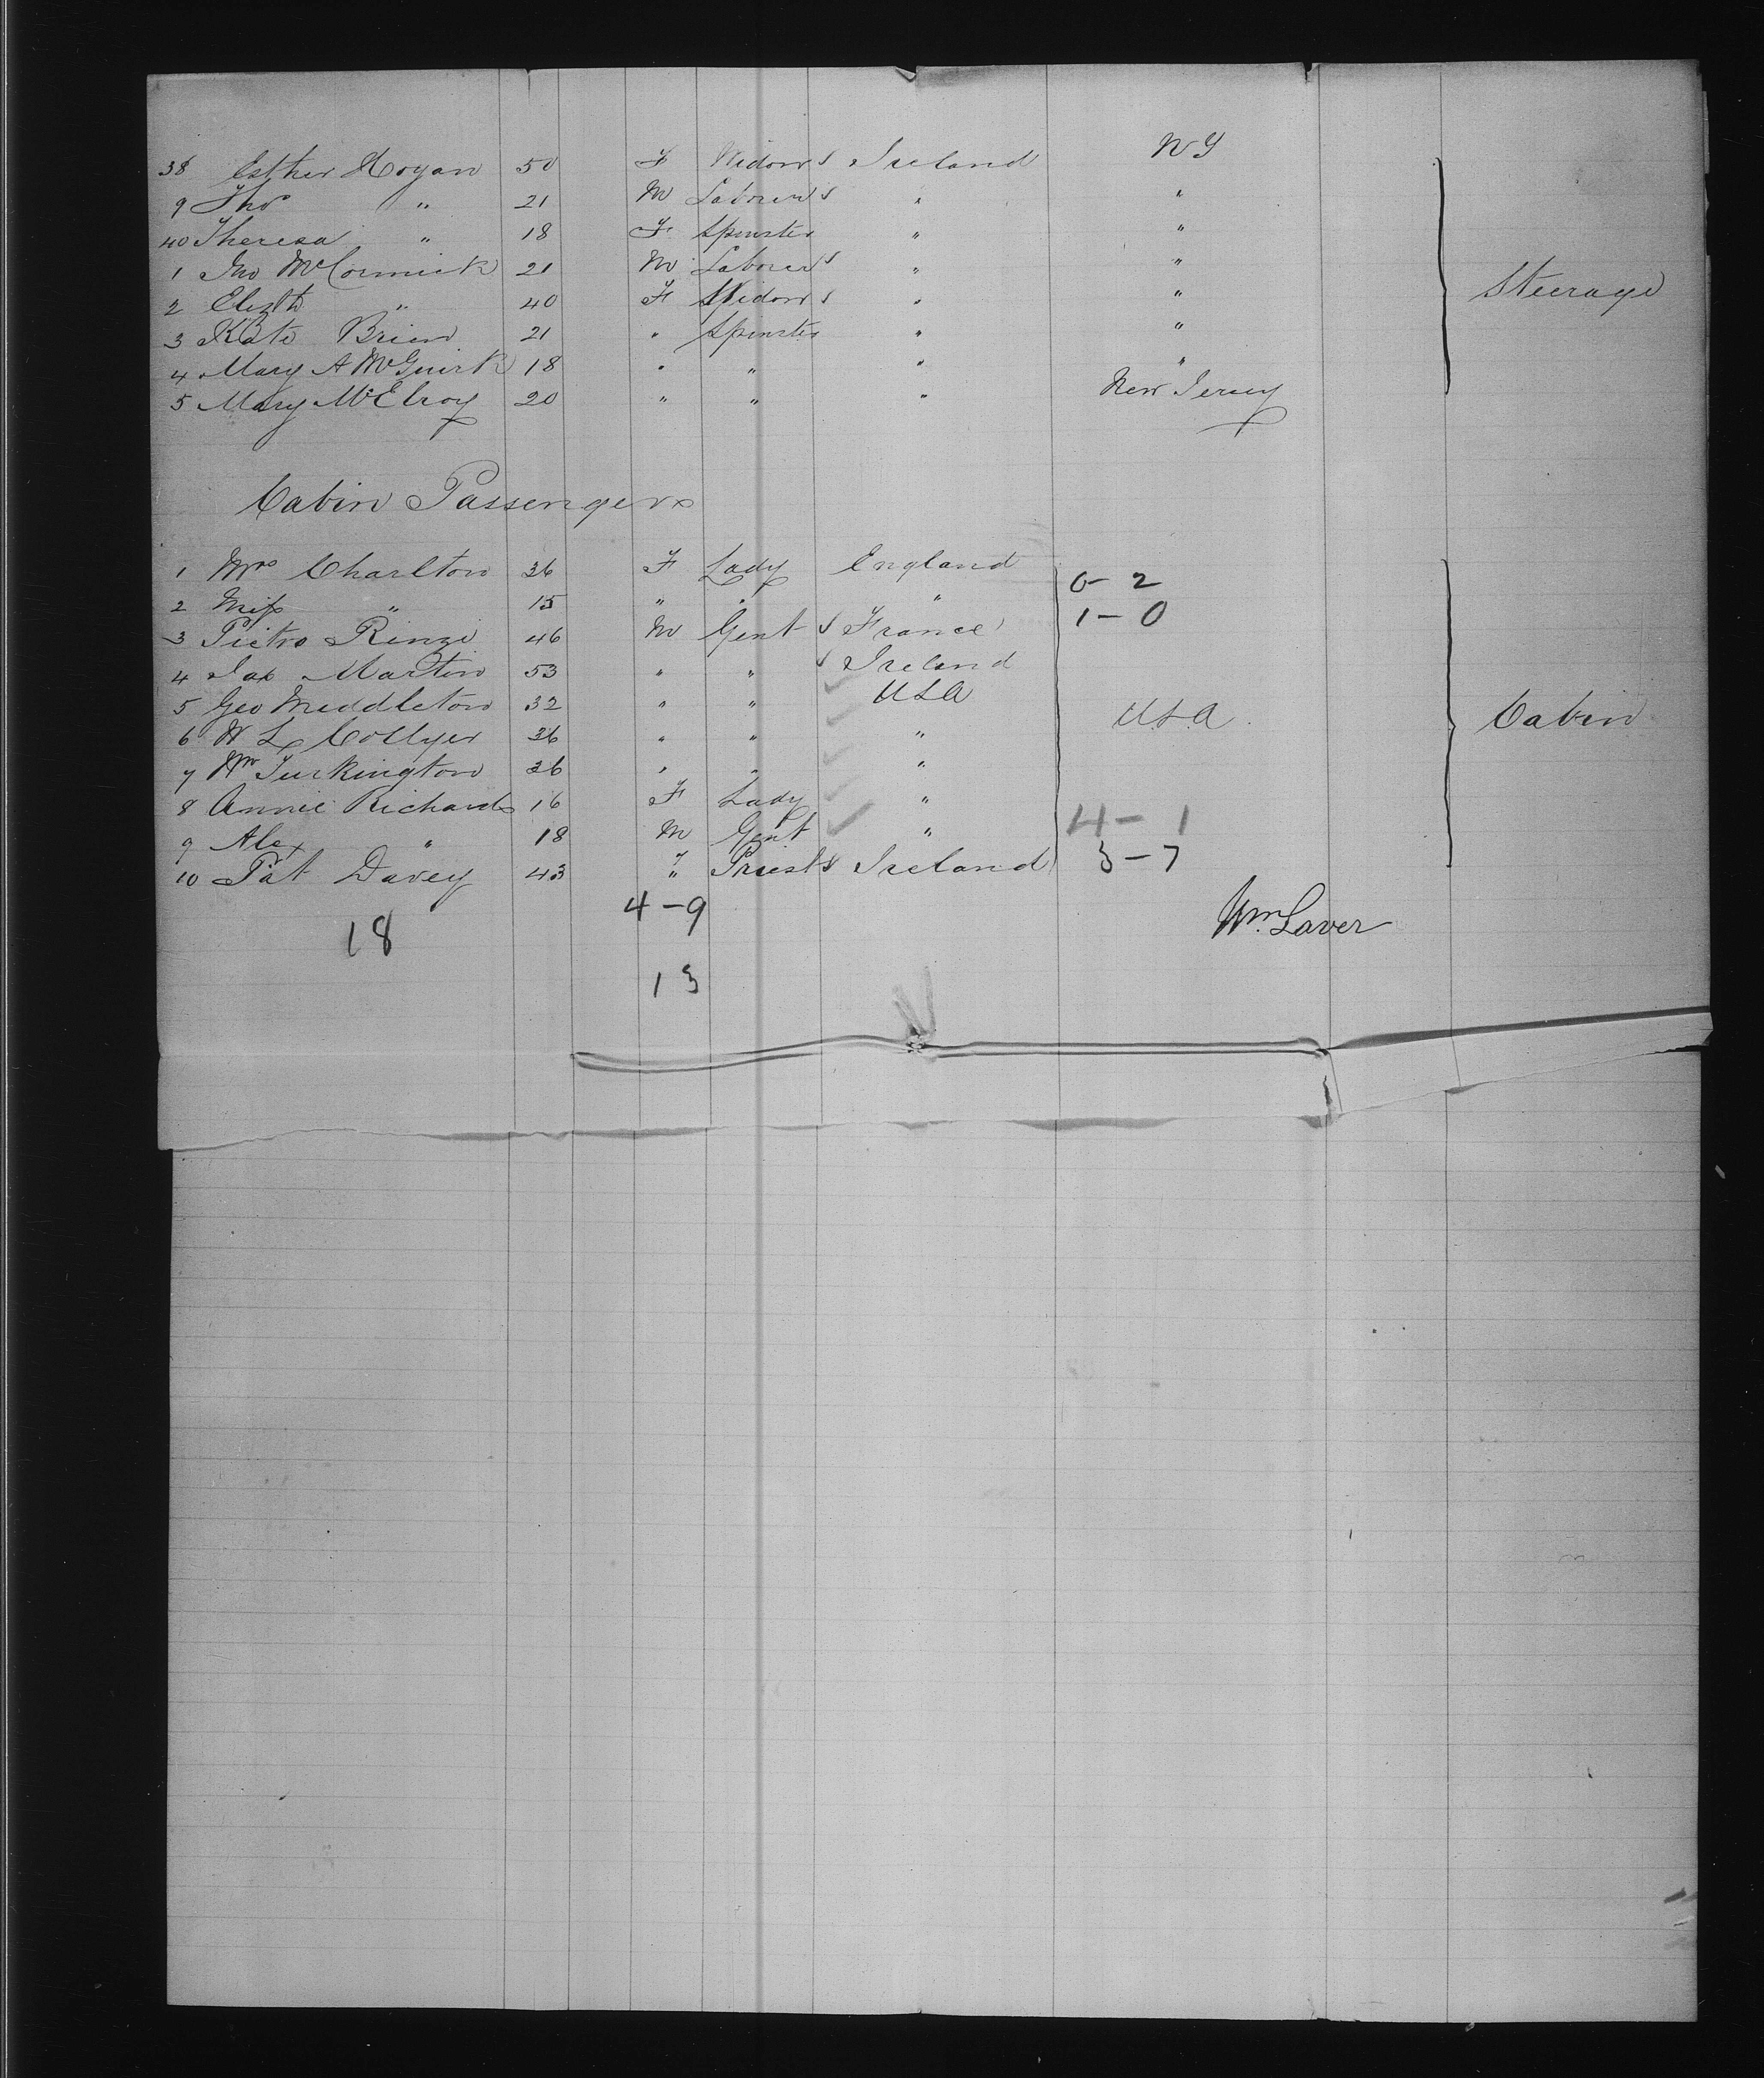 38 Esther Hogan 50 F Widow Ireland NY
9 Tho^s " 21 M Laborer " "
40 Theresa " 18 F Spinster " "
1 Jno McCormick 21 M Laborer " "
2 Elizth " 40 F Widow " " Steerage
3 Kate Brien 21 " Spinster " "
4 Mary A McGuirk 18 " " " "
5 Mary McElroy 20 " " " New Jersey
Cabin Passengers
1 Mrs Charlton 36 F Lady England
0-2
2 Miss " 15 " " "
1-0
3 Pietro Rinzi 46 M Gent France
4 Jas Martin 53 " " Ireland
5 Geo Middleton 32 " " USA USA Cabin
6 W L Collyer 36 " " "
7 Wm Turkington 26 " " "
8 Annie Richards 16 F Lady "
4-1
9 Alex " 18 M Gent "
3-7
10 Pat Davey 43 " Priest Ireland
4-9
18 Wm. Laver
13